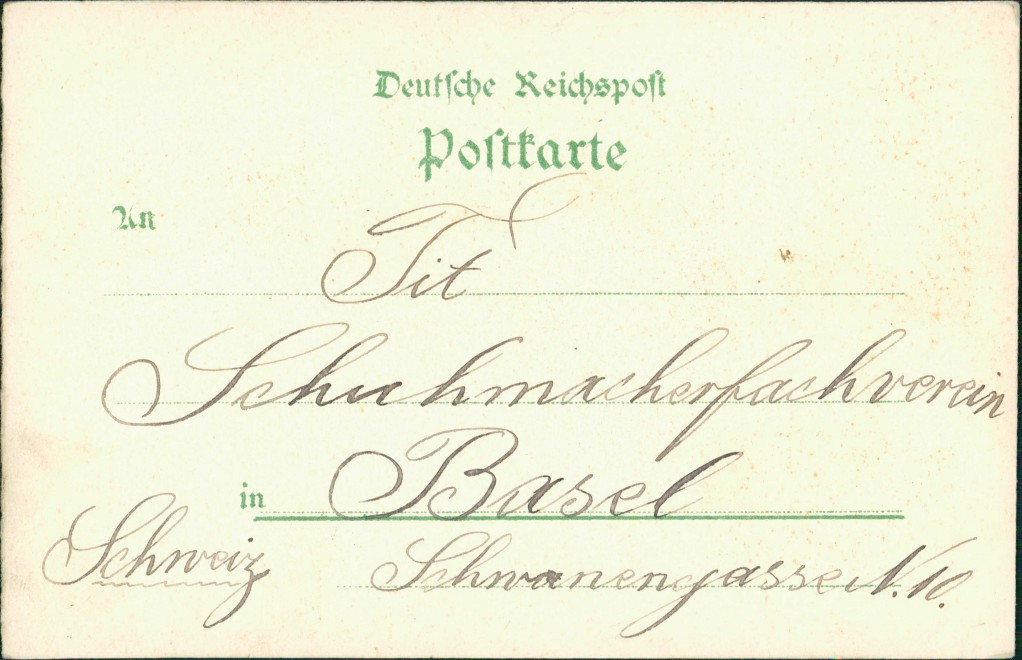 Deutsche Reichspost
Postkarte
An
Tit
Schuhmacherfachverein
in Basel
Schweiz Schwanengasse N. 10.